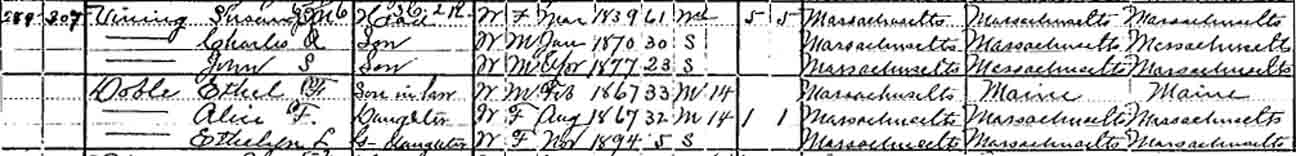 207 Vining Susan Head W F Mar 1839 61 Wd 5 5 Massachusetts Massachusetts Massachusetts
—— Charles Son W M Jan 1870 30 S Massachusetts Massachusetts Massachusetts
—— John S Son W M Apr 1877 23 S Massachusetts Massachusetts Massachusetts
Doble Ethel Son in law W M Feb 1867 33 M 14 Massachusetts Maine Maine
—— Alice F. Daughter W F Aug 1867 32 M 14 1 1 Massachusetts Massachusetts Massachusetts
—— L G-daughter W F Nov 1894 5 S Massachusetts Massachusetts Massachusetts